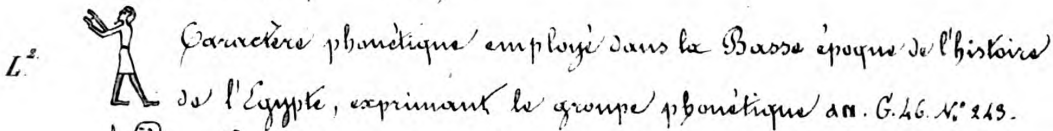 L². Caractère phonétique employé dans la Basse époque de l'histoire
de l'Egypte, exprimant le groupe phonétique an. G. 46. N.° 243.